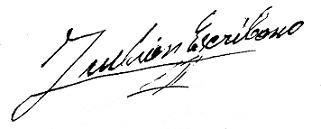 Julian Escribano